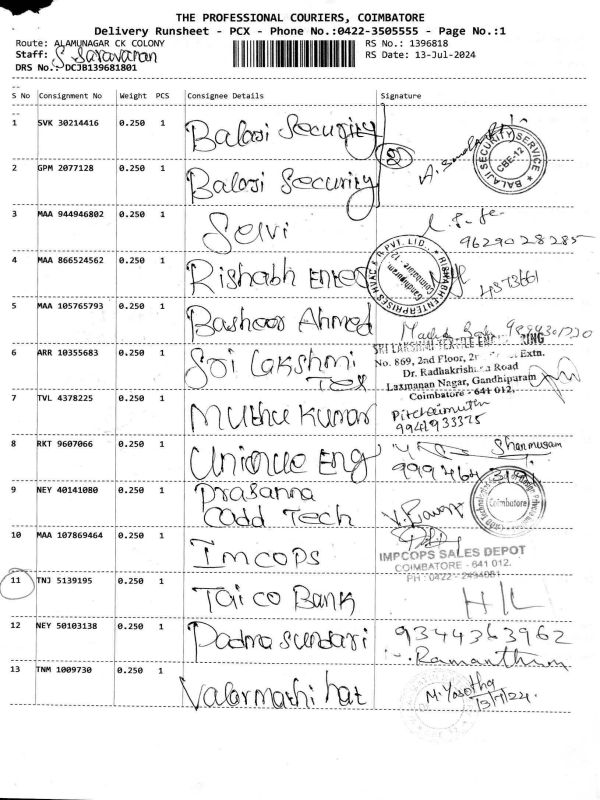 THE PROFESSIONAL COURIERS, COIMBATORE
Delivery Runsheet - PCX - Phone No.:0422-3505555 - Page No.:1
Route: ALAMUNAGAR CK COLONY RS No.: 1396818
Staff: S Saravanan RS Date: 13-Jul-2024
DRS No.: DCJB139681801
S No Consignment No Weight PCS Consignee Details Signature
1 SVK 30214416 0.250 1 Balaji Security
BALAJI SECURITY SERVICE CBE-12
2 GPM 2077128 0.250 1 Balaji Security
3 MAA 944946802 0.250 1 Selvi
9629028285
4 MAA 866524562 0.250 1 Rishabh Enter
RISHABH ENTERPRISES HVAC & R PVT. LTD., Gandhipuram Coimbatore - 12
4873661
5 MAA 105765793 0.250 1 Basheer Ahmed
6 ARR 10355683 0.250 1 Sri Lakshmi Tex
SRI LAKSHMI TEXTILE ENGINEERING
No. 869, 2nd Floor, Extn.
Dr. Radhakrishnan Road
Laxmanan Nagar, Gandhipuram
Coimbatore - 641 012.
7 TVL 4378225 0.250 1 Muthu Kumar
Pitchaimuthu
9941933375
8 RKT 9607066 0.250 1 Unique Eng
Shanmugam
9 NEY 40141080 0.250 1 Prasanna
Cadd Tech
Coimbatore
10 MAA 107869464 0.250 1 Imcops
IMPCOPS SALES DEPOT
COIMBATORE - 641 012.
PH : 0422 - 2494081
11 TNJ 5139195 0.250 1 Taico Bank
H/L
12 NEY 50103138 0.250 1 Padma Sundari
9344363962
13 TNM 1009730 0.250 1 Valarmathi hat
M. Yasotha
13/7/24.